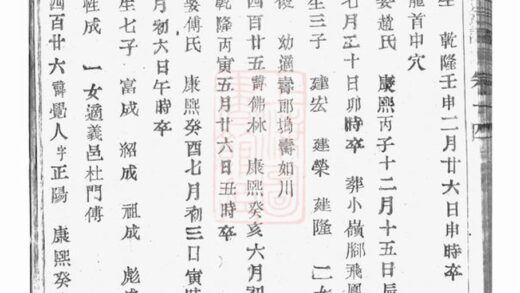 卷十四
生 乾隆壬申二月廿六日申時卒
龍首申穴
娶趙氏 康熙丙子十二月十五日辰
七月三十日卯時卒 葬小嶺腳飛
生三子 建宏 建榮 建隆 女
幼適壽郎塢壽如川
四百廿五 佛林 康熙癸亥六月初
乾隆丙寅五月廿六日丑時卒
娶傅氏 康熙癸酉七月初三日寅時
月初六日午時卒
生七子 富成 紹成 祖成 彪成
性成 一女適義邑杜門傅
四百廿六 覺人字正陽 康熙癸